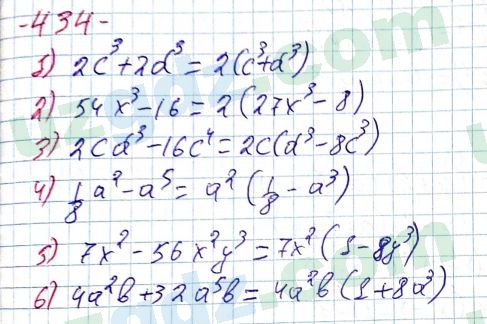 -434-
1) 2c³+2d³ = 2(c³+d³)
2) 54x³-16 = 2(27x³-8)
3) 2cd³-16c⁴ = 2c(d³-8c³)
4) 1/8 a²-a⁵ = a²(1/8-a³)
5) 7x²-56x²y³ = 7x²(1-8y³)
6) 4a²b+32a⁵b = 4a²b(1+8a³)